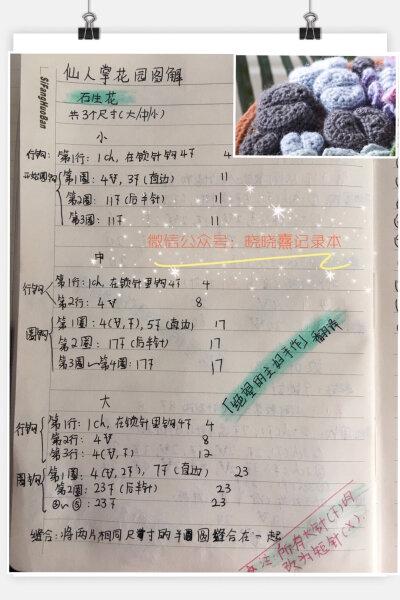 SiFangHuoBan
仙人掌花园图解
石生花
共3个尺寸(大/中/小)
小
行钩: 第1行: 1ch, 在锁针钩4T 4
开始圈钩 第1圈: 4V, 3T(直边) 11
第2圈: 11T(后半针) 11
第3圈: 11T 11
微信公众号: 晓晓熹记录本
中
行钩 第1行: 1ch, 在锁针里钩4T 4
第2行: 4V 8
圈钩 第1圈: 4(V,T), 5T(直边) 17
第2圈: 17T(后半针) 17
第3圈～第4圈: 17T 17
「绝望的主妇手作」翻译
大
行钩 第1行: 1ch, 在锁针里钩4T 4
第2行: 4V 8
第3行: 4(V,T) 12
圈钩 第1圈: 4(V,2T), 7T(直边) 23
第2圈: 23T(后半针) 23
③～⑤: 23T 23
缝合: 将两片相同尺寸的半圆缝合在一起
备注: 所有长针(T)可
改为短针(X).